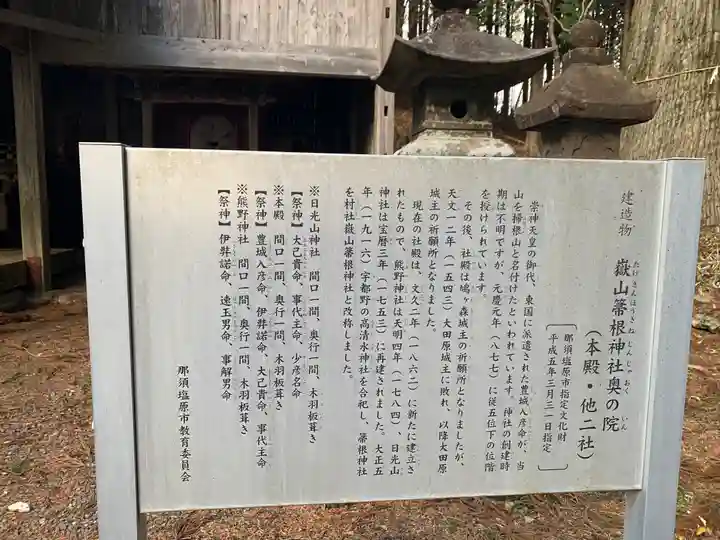 建造物 嶽山箒根神社奥の院
たけさんほうきね じんじゃおく いん
(本殿・他二社)
那須塩原市指定文化財
平成五年三月三一日指定
崇神天皇の御代、東国に派遣された豊城入彦命が、当
山を掃根山と名付けたといわれています。神社の創建時
期は不明ですが、元慶元年(八七七)に従五位下の位階
を授けられています。
その後、社殿は鳩ヶ森城主の祈願所となりましたが、
天文一二年(一五四三)大田原城主に敗れ、以降大田原
城主の祈願所となりました。
現在の社殿は、文久二年(一八六二)に新たに建立さ
れたもので、熊野神社は天明四年(一七八四)、日光山
神社は宝暦三年(一七五三)に再建されました。大正五
年(一九一六)宇都野の高清水神社を合祀し、箒根神社
を村社嶽山箒根神社と改称しました。
※日光山神社 間口一間、奥行一間、木羽板葺き
【祭神】大己貴命、事代主命、少彦名命
※本殿 間口一間、奥行一間、木羽板葺き
【祭神】豊城入彦命、伊弉諾命、大己貴命、事代主命
※熊野神社 間口一間、奥行一間、木羽板葺き
【祭神】伊弉諾命、速玉男命、事解男命
那須塩原市教育委員会